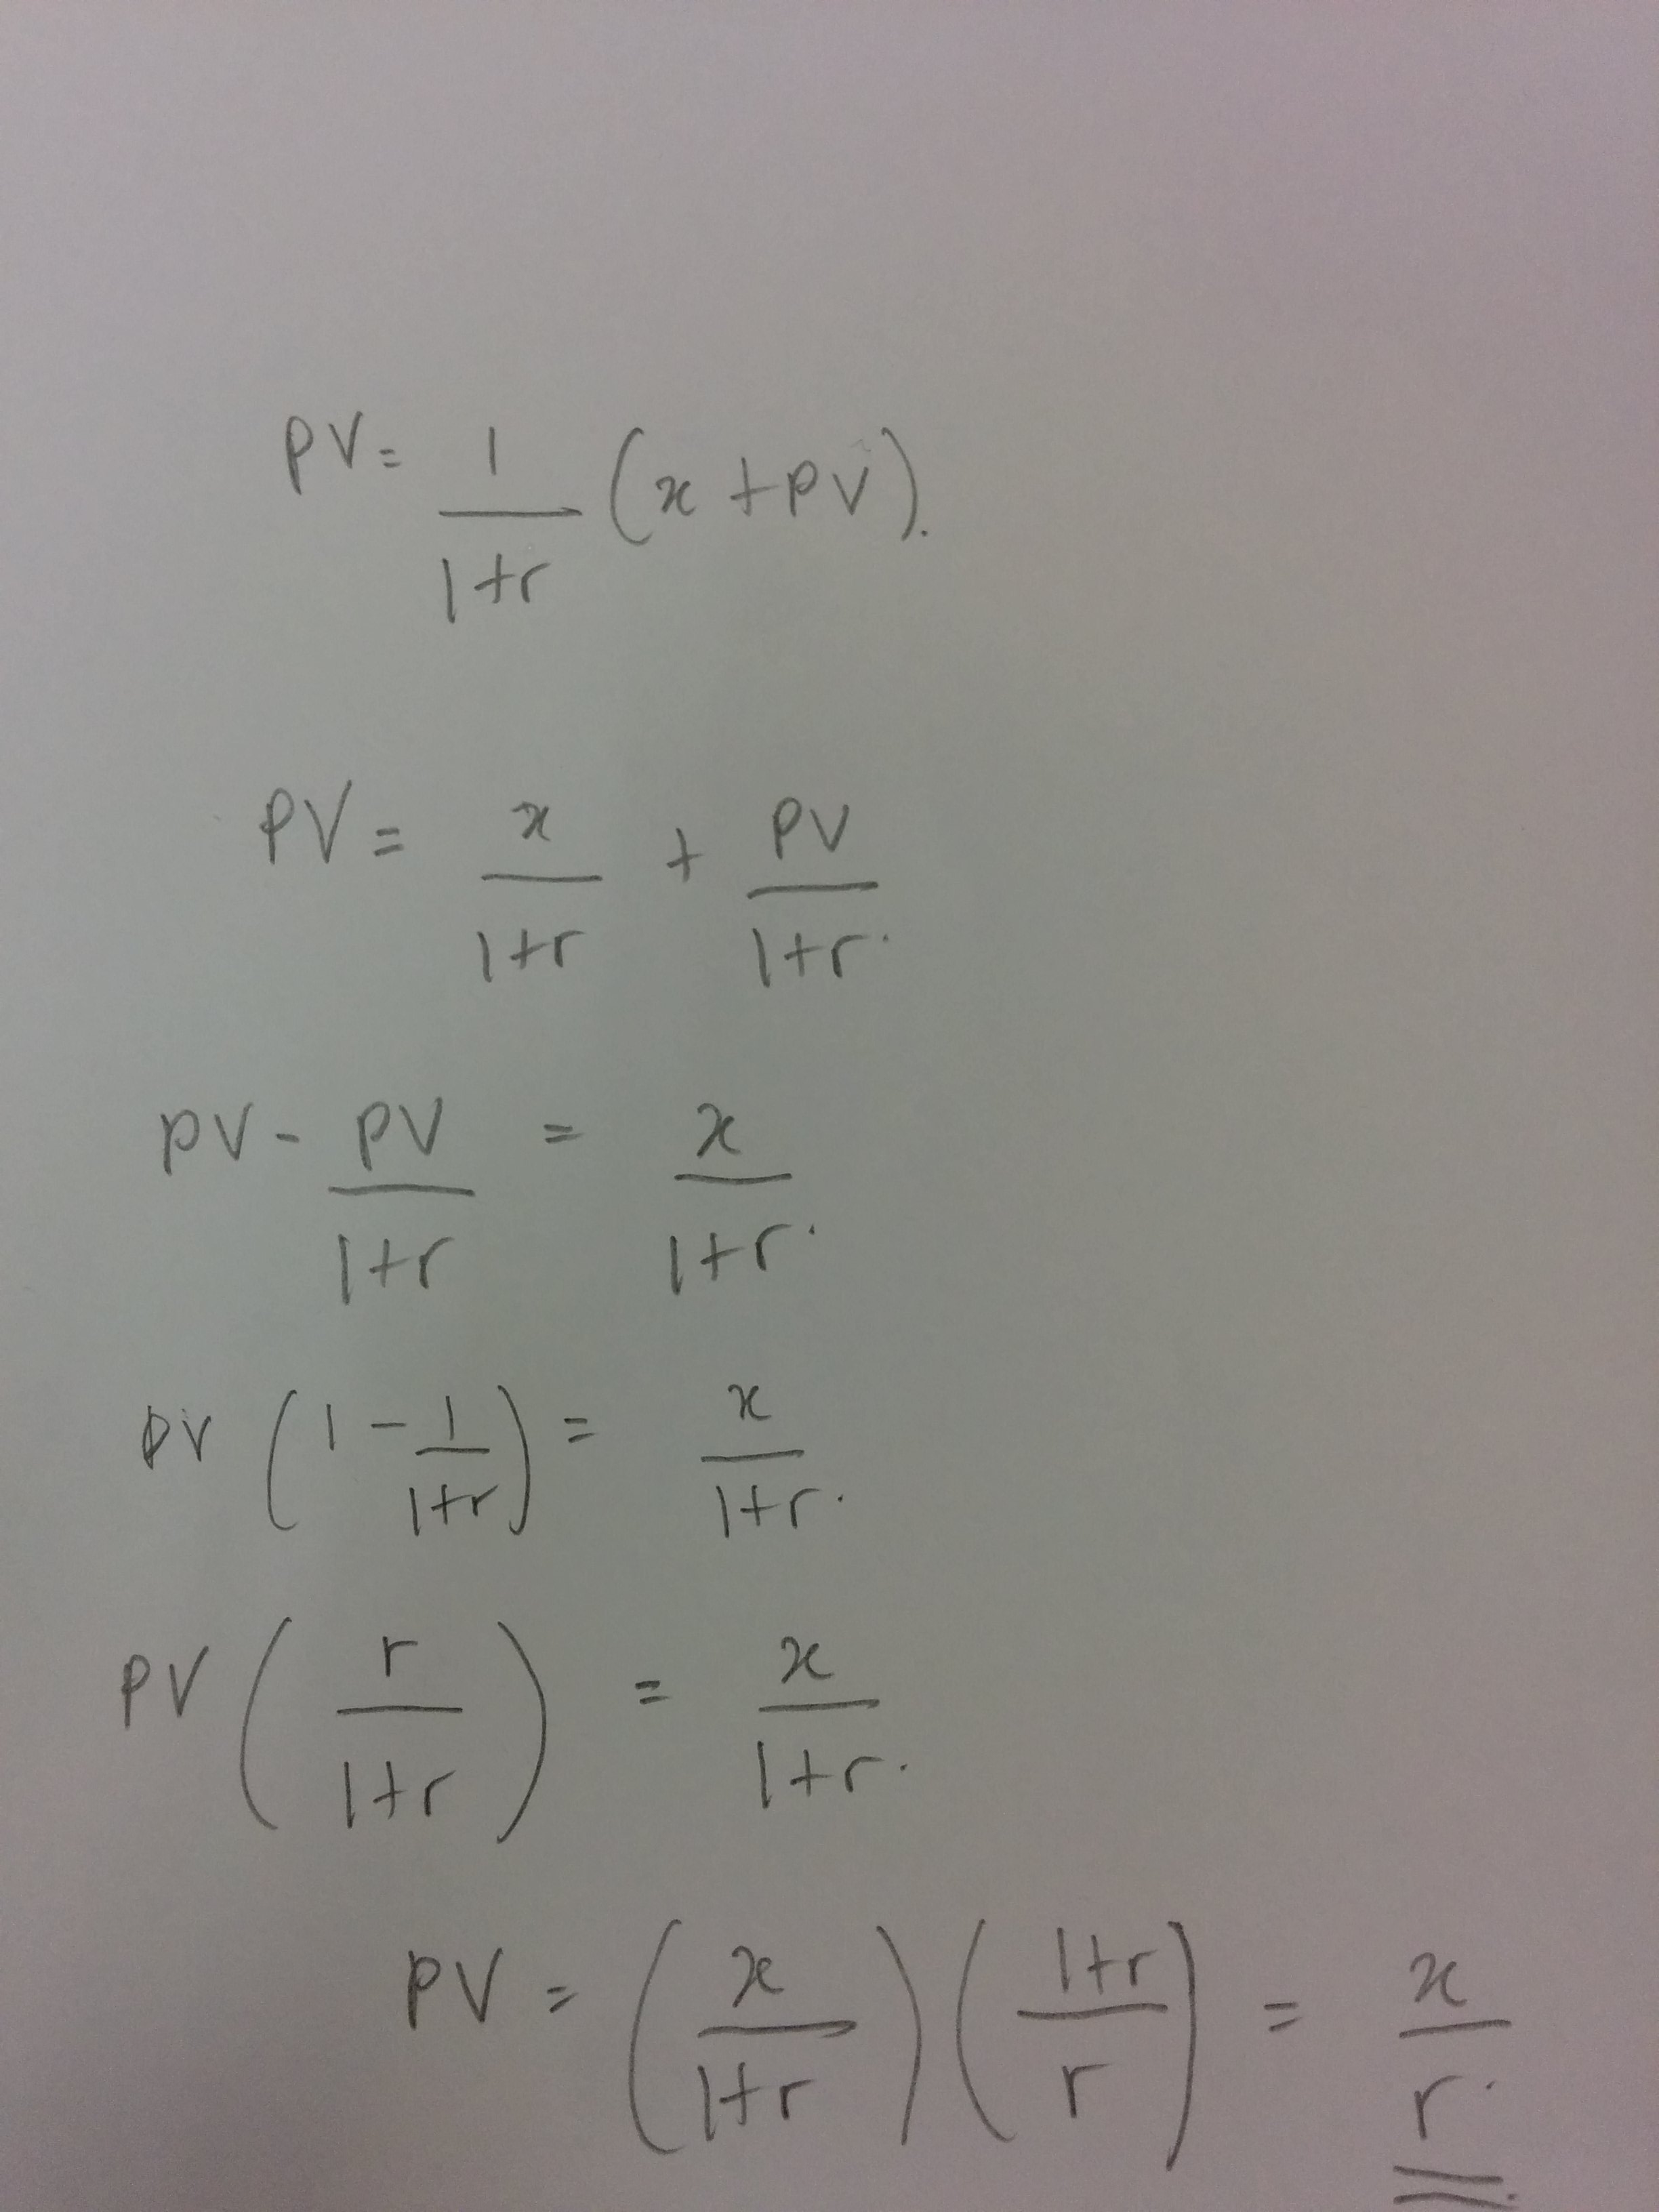 PV = 1/(1+r) (x + PV).
PV = x/(1+r) + PV/(1+r).
PV - PV/(1+r) = x/(1+r).
PV (1 - 1/(1+r)) = x/(1+r).
PV (r/(1+r)) = x/(1+r).
PV = (x/(1+r)) ((1+r)/r) = x/r.